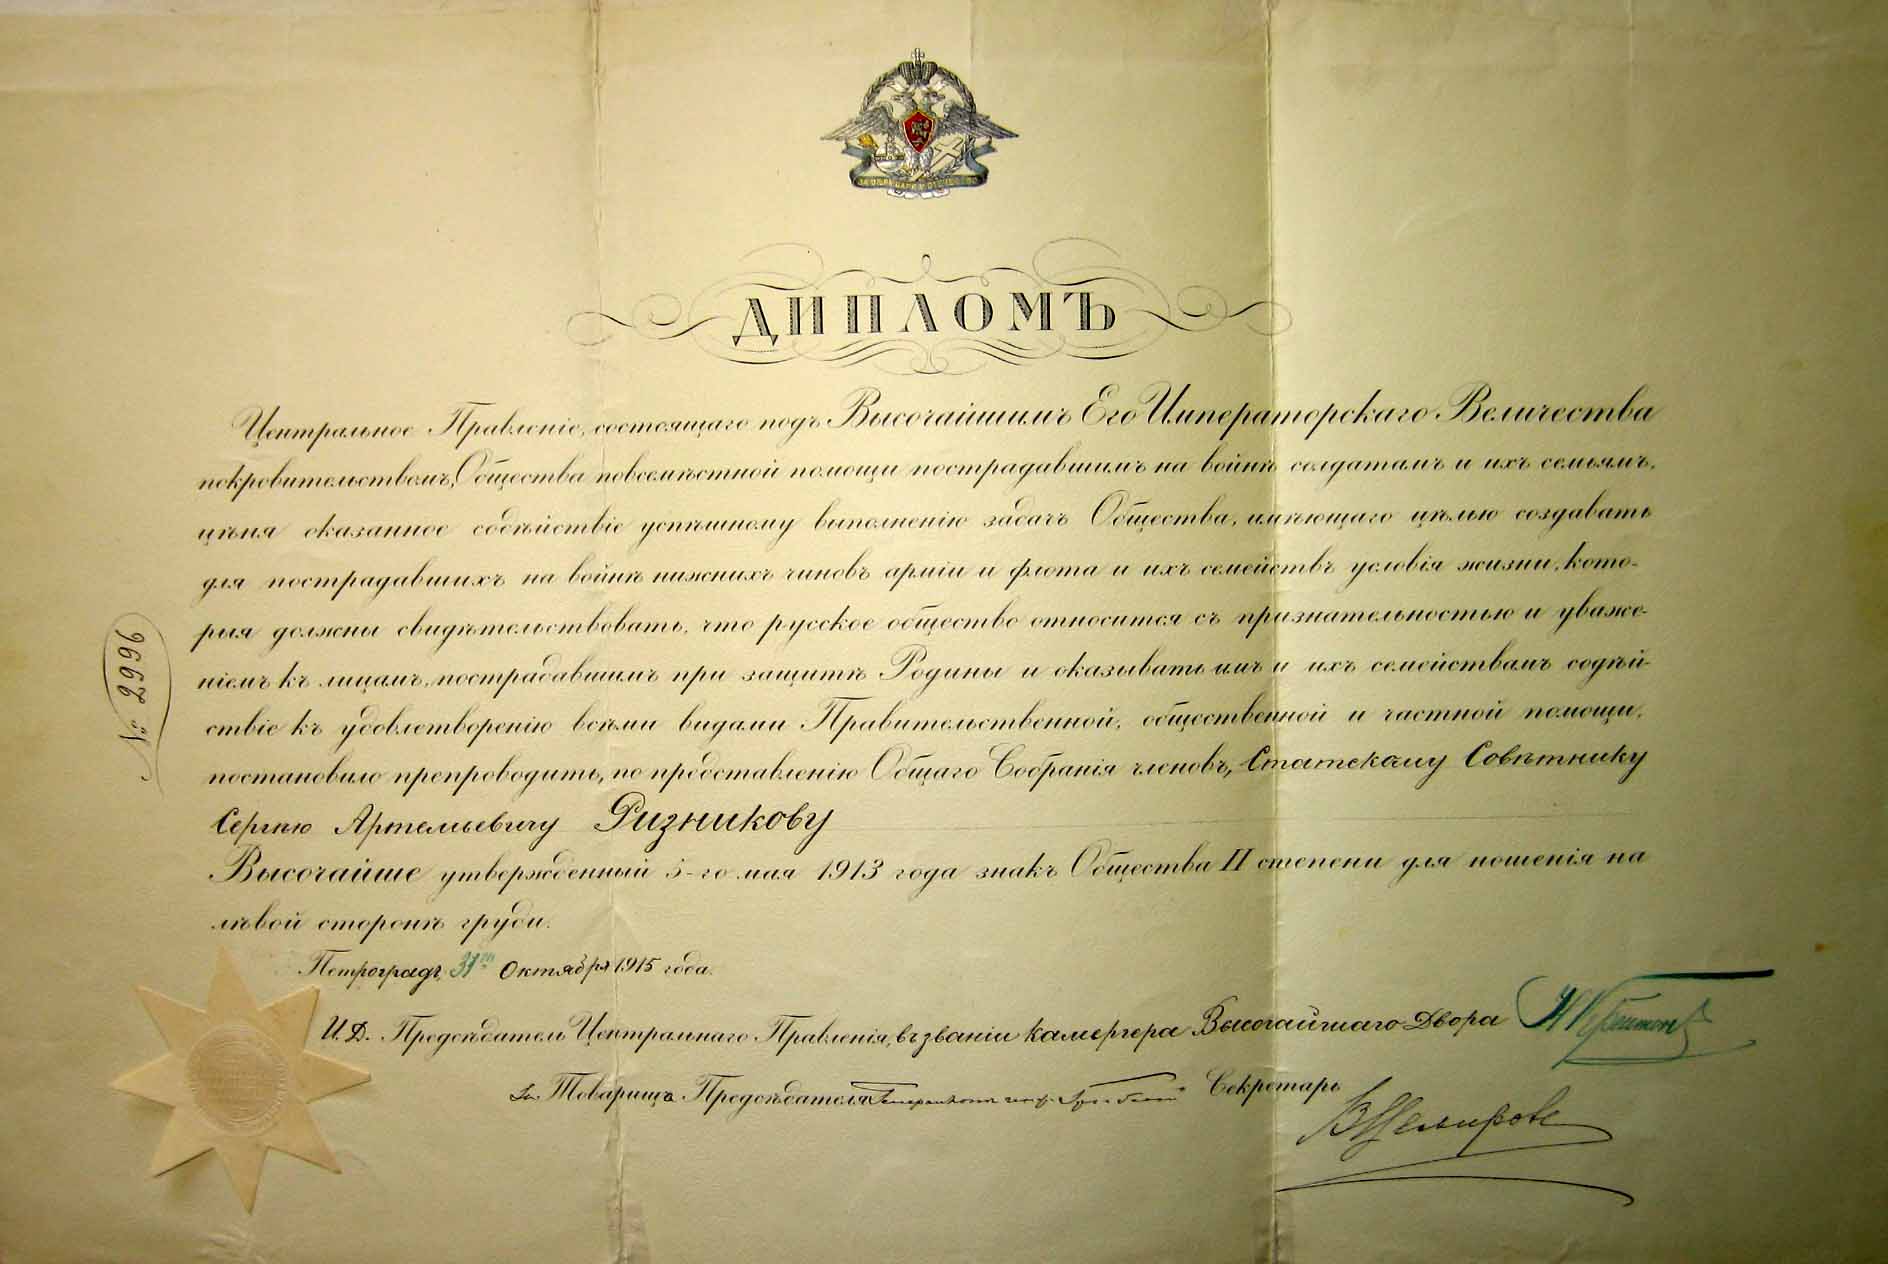 ЗА ВѢРУ ЦАРЯ И ОТЕЧЕСТВО
ДИПЛОМЪ
Центральное Правленіе, состоящаго подъ Высочайшимъ Его Императорскаго Величества
покровительствомъ, Общества повсемѣстной помощи пострадавшимъ на войнѣ солдатамъ и ихъ семьямъ,
цѣня оказанное содѣйствіе успѣшному выполненію задачъ Общества, имѣющаго цѣлью создавать
для пострадавшихъ на войнѣ нижнихъ чиновъ арміи и флота и ихъ семействъ условія жизни, кото-
рыя должны свидѣтельствовать, что русское общество относится съ признательностью и уваже-
ніемъ къ лицамъ, пострадавшимъ при защитѣ Родины и оказывать имъ и ихъ семействамъ содѣй-
ствіе къ удовлетворенію всѣми видами Правительственной, общественной и частной помощи,
постановило препроводить, по представленію Общаго Собранія членовъ, Статскому Совѣтнику
Сергѣю Артемьевичу Ризникову
Высочайше утвержденный 5-го мая 1913 года знакъ Общества II степени для ношенія на
лѣвой сторонѣ груди.
Петроградъ, 31го Октября 1915 года.
И. Д. Предсѣдатель Центральнаго Правленія, въ званіи камергера Высочайшаго Двора
За Товарища Предсѣдателя Секретарь
№ 2996